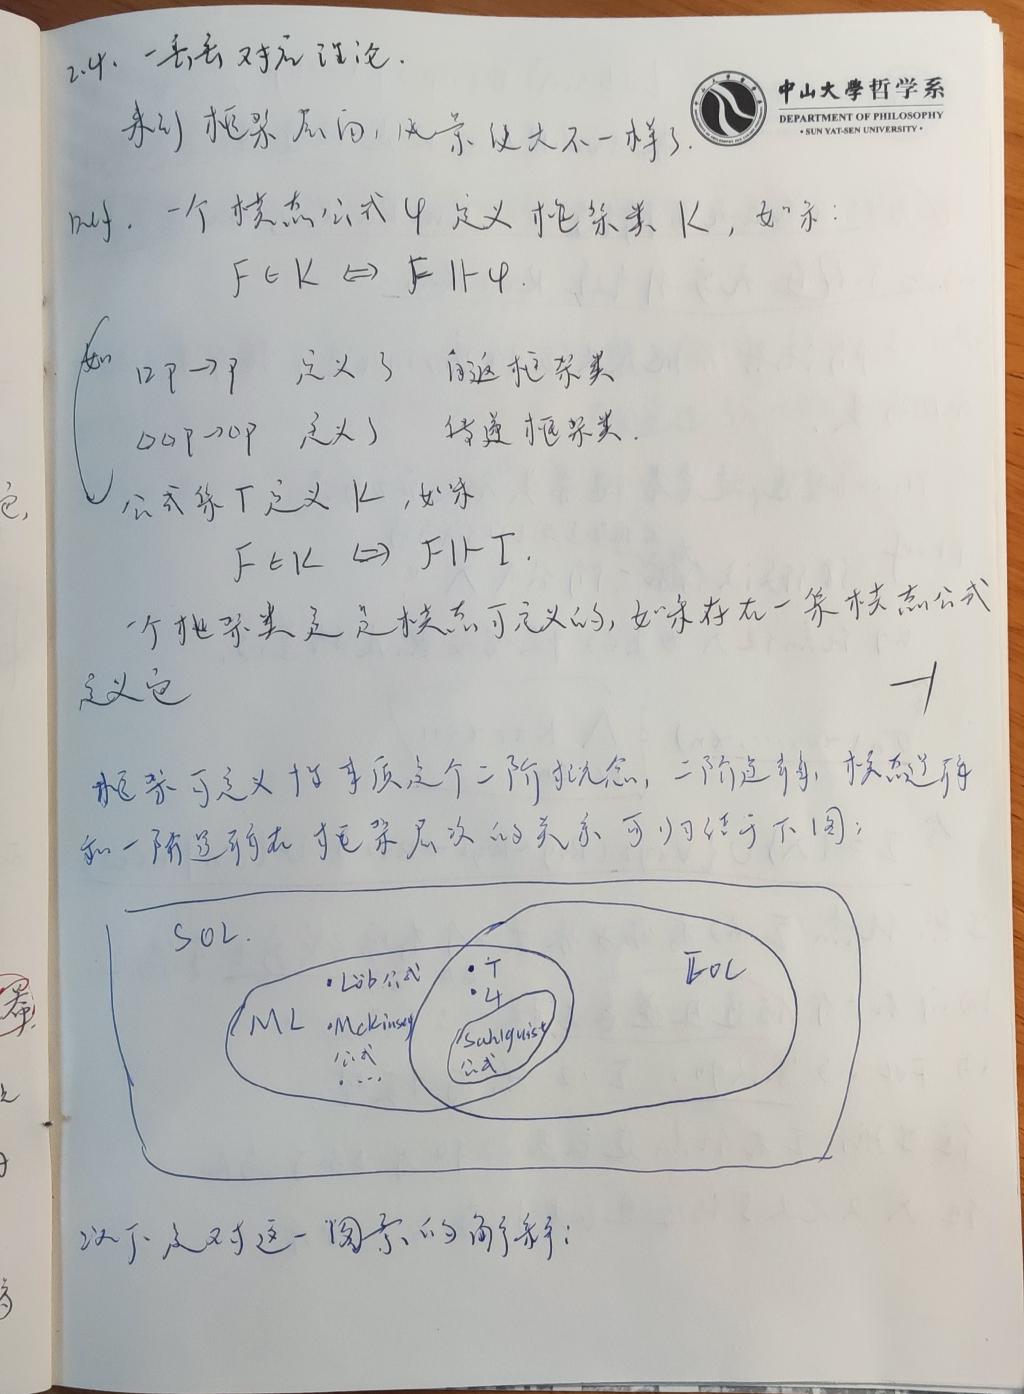 2.4. 一些些对应理论.
中山大學哲学系
DEPARTMENT OF PHILOSOPHY
• SUN YAT-SEN UNIVERSITY •
来到框架层面, 风景便大不一样了.
Def. 一个模态公式φ定义框架类K, 如果:
F∈K ⇔ F⊩φ.
如 □p→p 定义了 自返框架类
◇◇p→◇p 定义了 传递框架类.
公式集Γ定义K, 如果
F∈K ⇔ F⊩Γ.
一个框架类是模态可定义的, 如果存在一集模态公式
定义它 ⊣
框架可定义性本质是个二阶概念, 二阶逻辑, 模态逻辑
和一阶逻辑在框架层次的关系可归结于下图:
SOL.
• Löb公式
• T
FOL
ML
• 4
• McKinsey
公式
• ...
Sahlquist
公式
以下是对这一图景的解释: